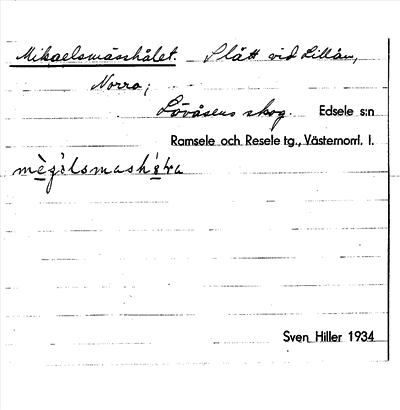 Mikaelsmässhålet. Slått vid Lillån,
Norra,
Lövåsens skog. Edsele s:n
Ramsele och Resele tg., Västernorrl. l.
Sven Hiller 1934